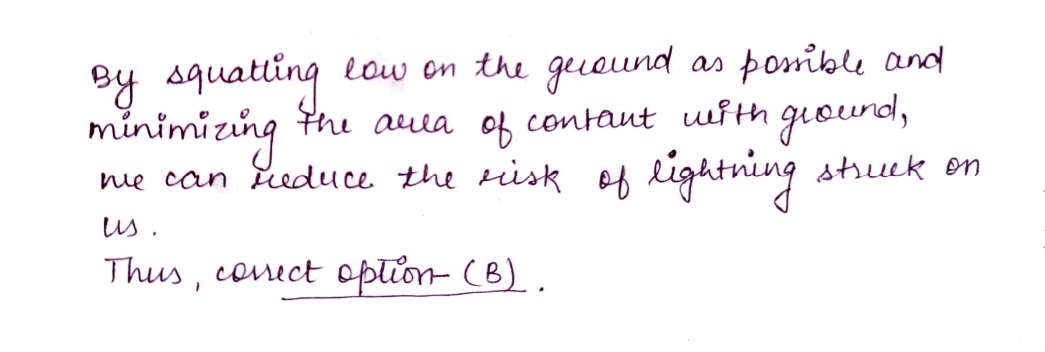 By squatting low on the ground as possible and
minimizing the area of contant with ground,
we can reduce the risk of lightning struck on
us.
Thus, correct option (B).